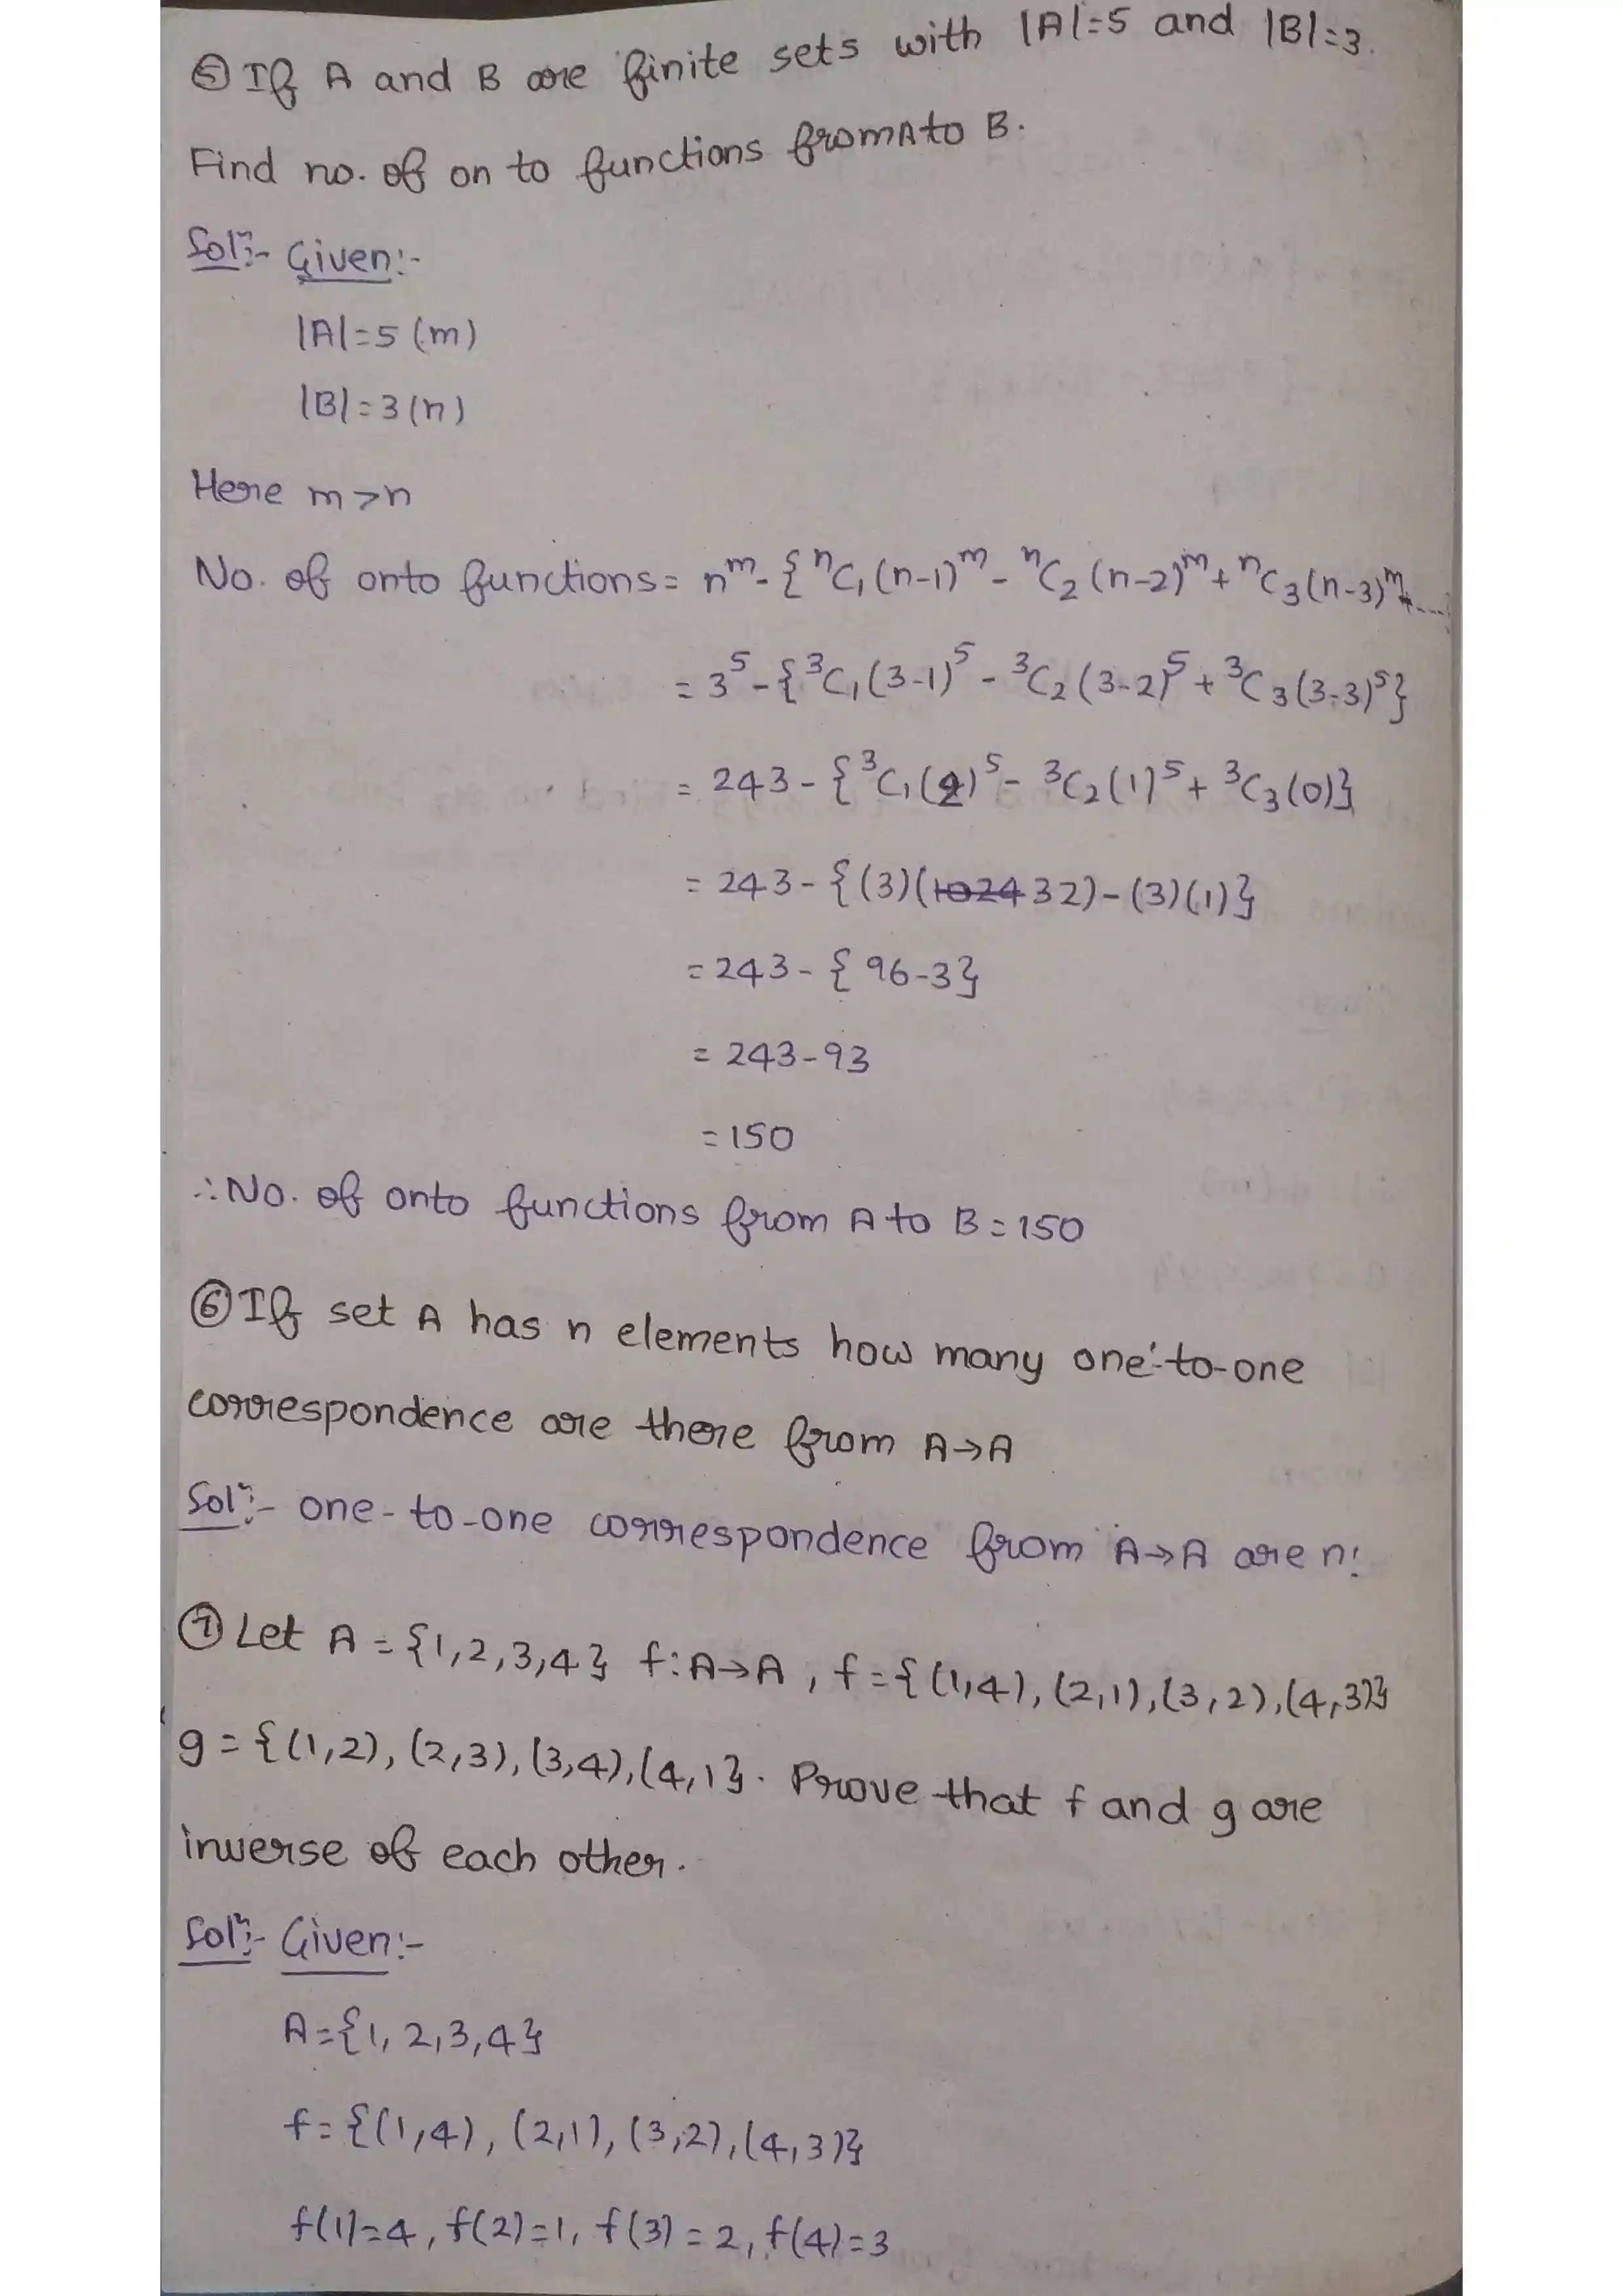 ⑤ If A and B are finite sets with |A|=5 and |B|=3.
Find no. of on to functions from A to B.
Solⁿ:- Given:-
|A|=5 (m)
|B|=3 (n)
Here m>n
No. of onto functions = nᵐ - {ⁿC₁(n-1)ᵐ - ⁿC₂(n-2)ᵐ + ⁿC₃(n-3)ᵐ + ....}
= 3⁵ - {³C₁(3-1)⁵ - ³C₂(3-2)⁵ + ³C₃(3-3)⁵}
= 243 - {³C₁(2)⁵ - ³C₂(1)⁵ + ³C₃(0)}
= 243 - {(3)(1024 32) - (3)(1)}
= 243 - {96-3}
= 243-93
= 150
∴ No. of onto functions from A to B = 150
⑥ If set A has n elements how many one-to-one
correspondence are there from A→A
Solⁿ:- one-to-one correspondence from A→A are n!
⑦ Let A = {1,2,3,4} f:A→A, f={(1,4),(2,1),(3,2),(4,3)}
g={(1,2),(2,3),(3,4),(4,1}. Prove that f and g are
inverse of each other.
Solⁿ:- Given:-
A={1,2,3,4}
f={(1,4),(2,1),(3,2),(4,3)}
f(1)=4, f(2)=1, f(3)=2, f(4)=3